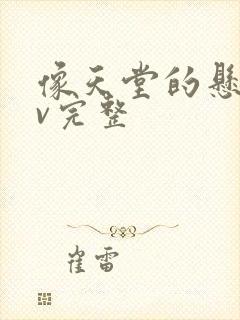 像天堂的悬
v完整
崔雷